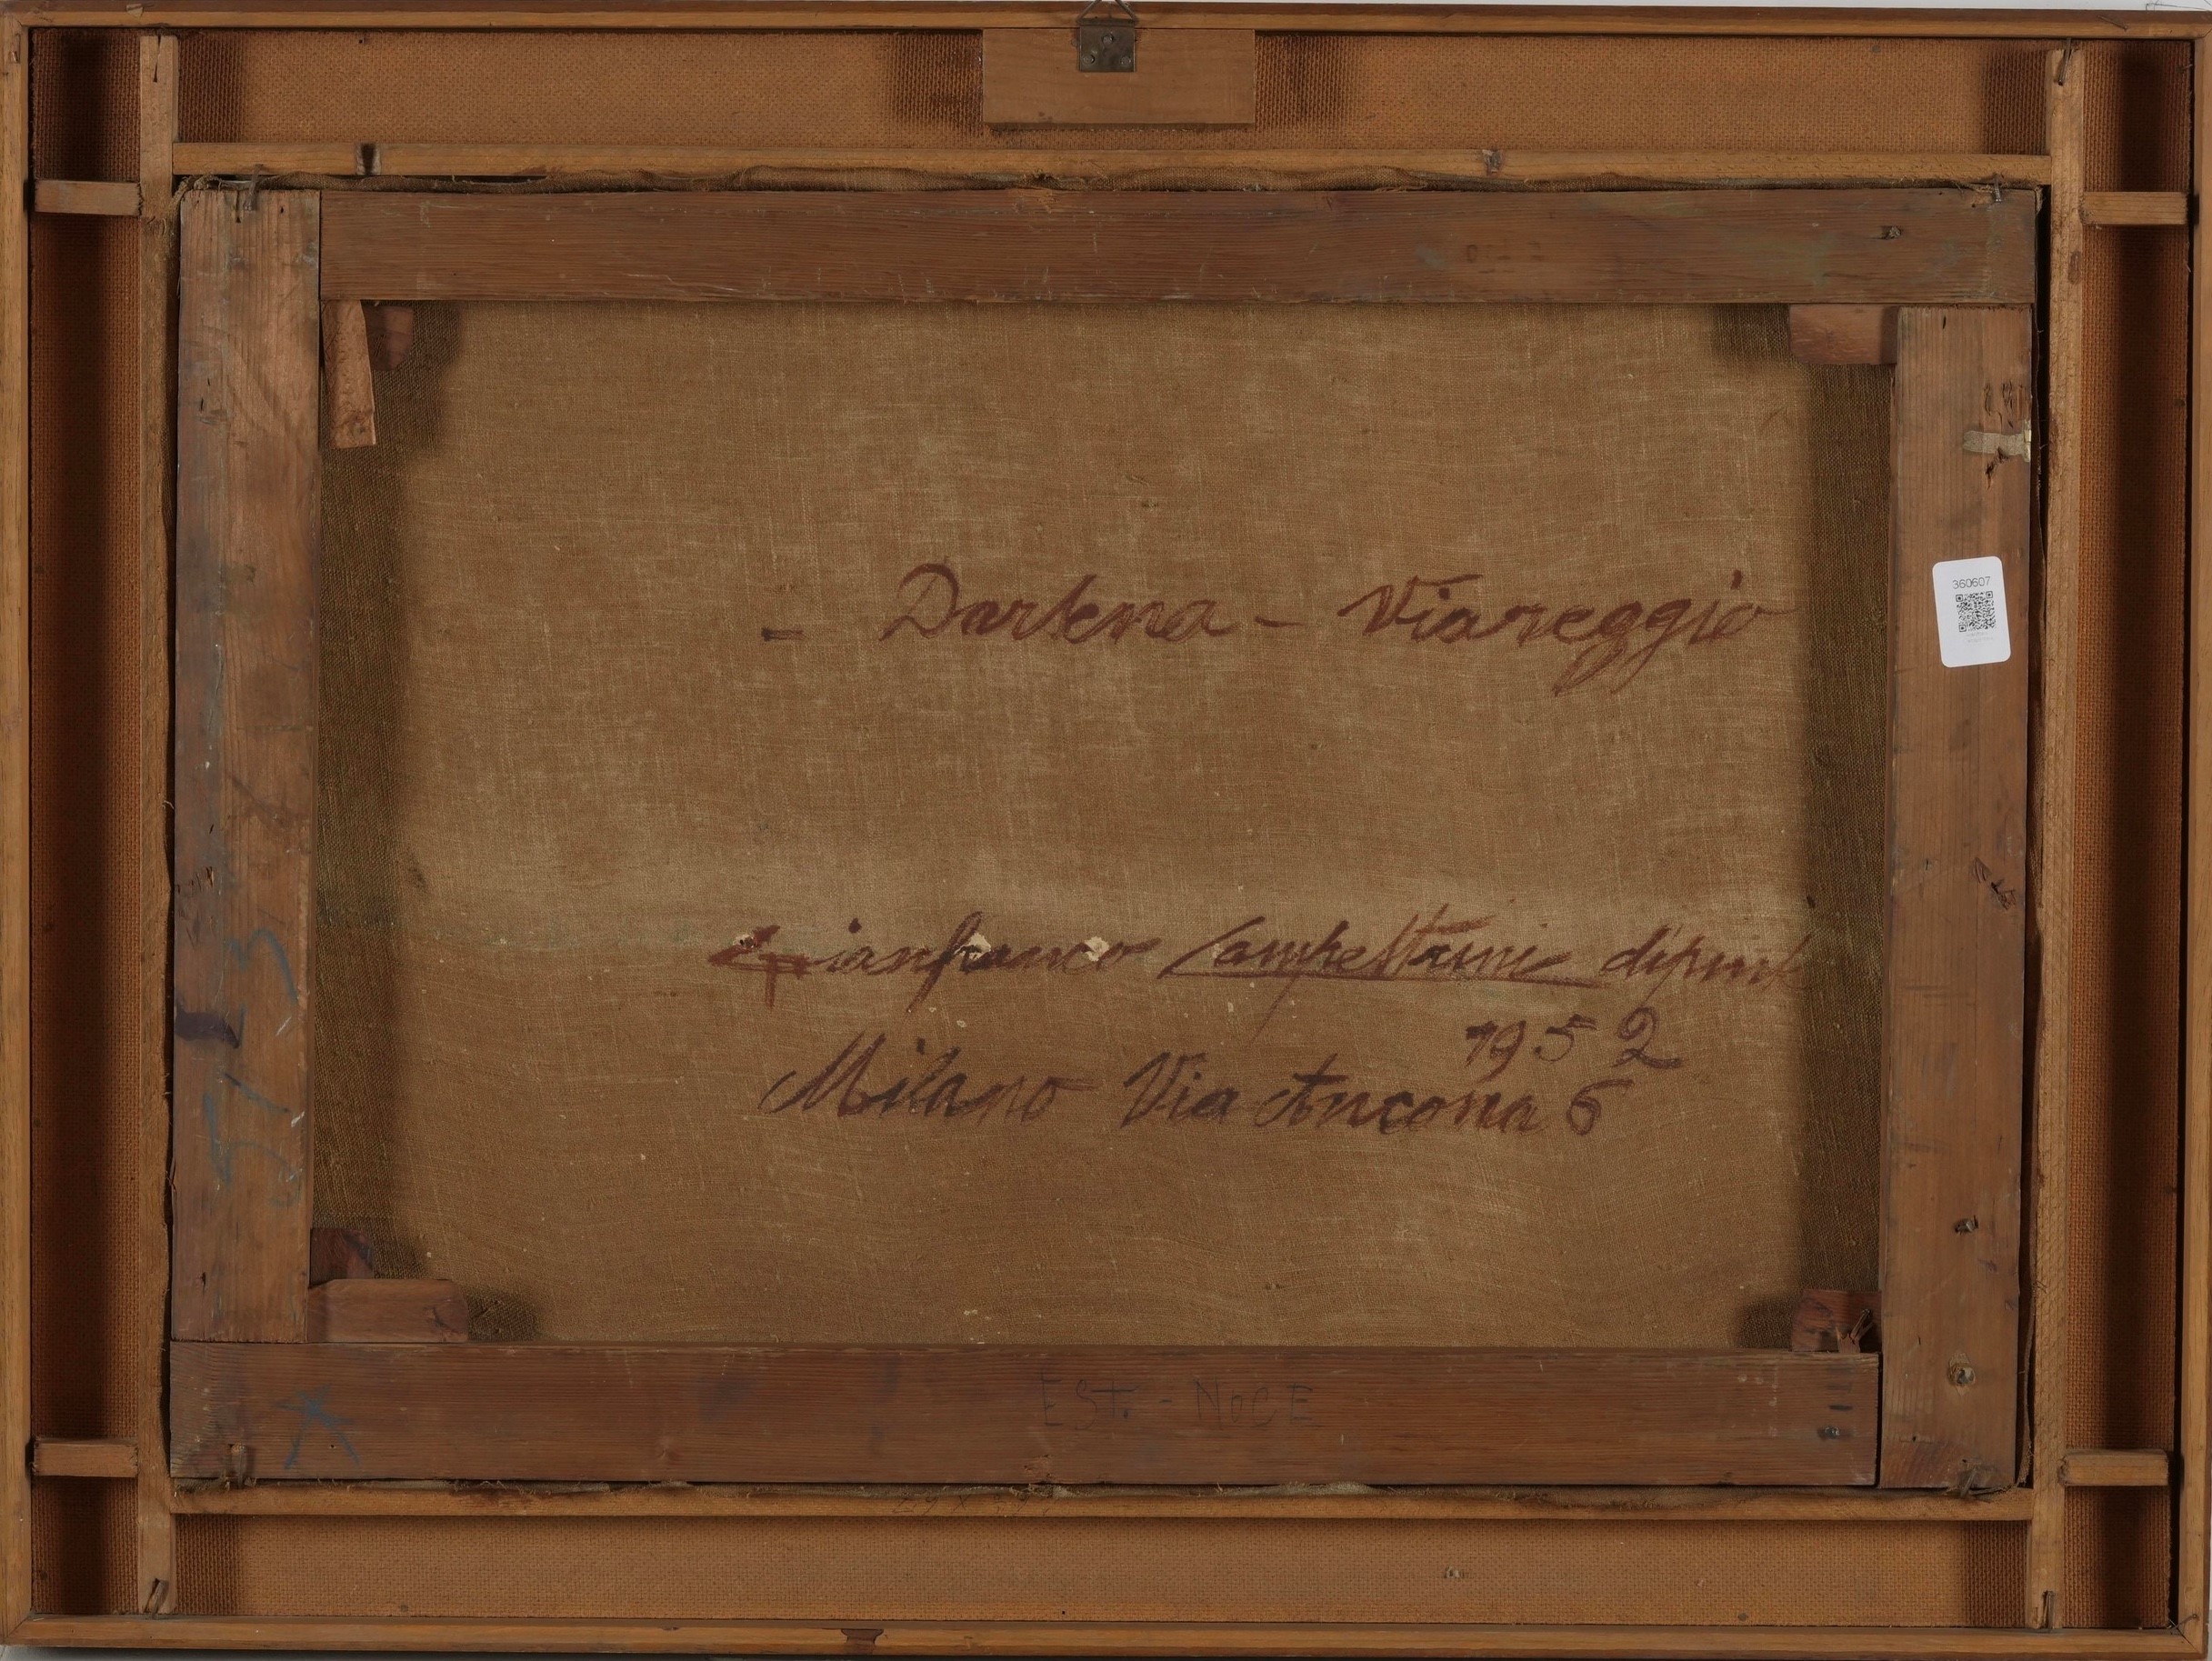 360607
- Darsena - Viareggio
Gianfranco Campestrini
1952
Milano Via Ancona 6
EST. - NOCE